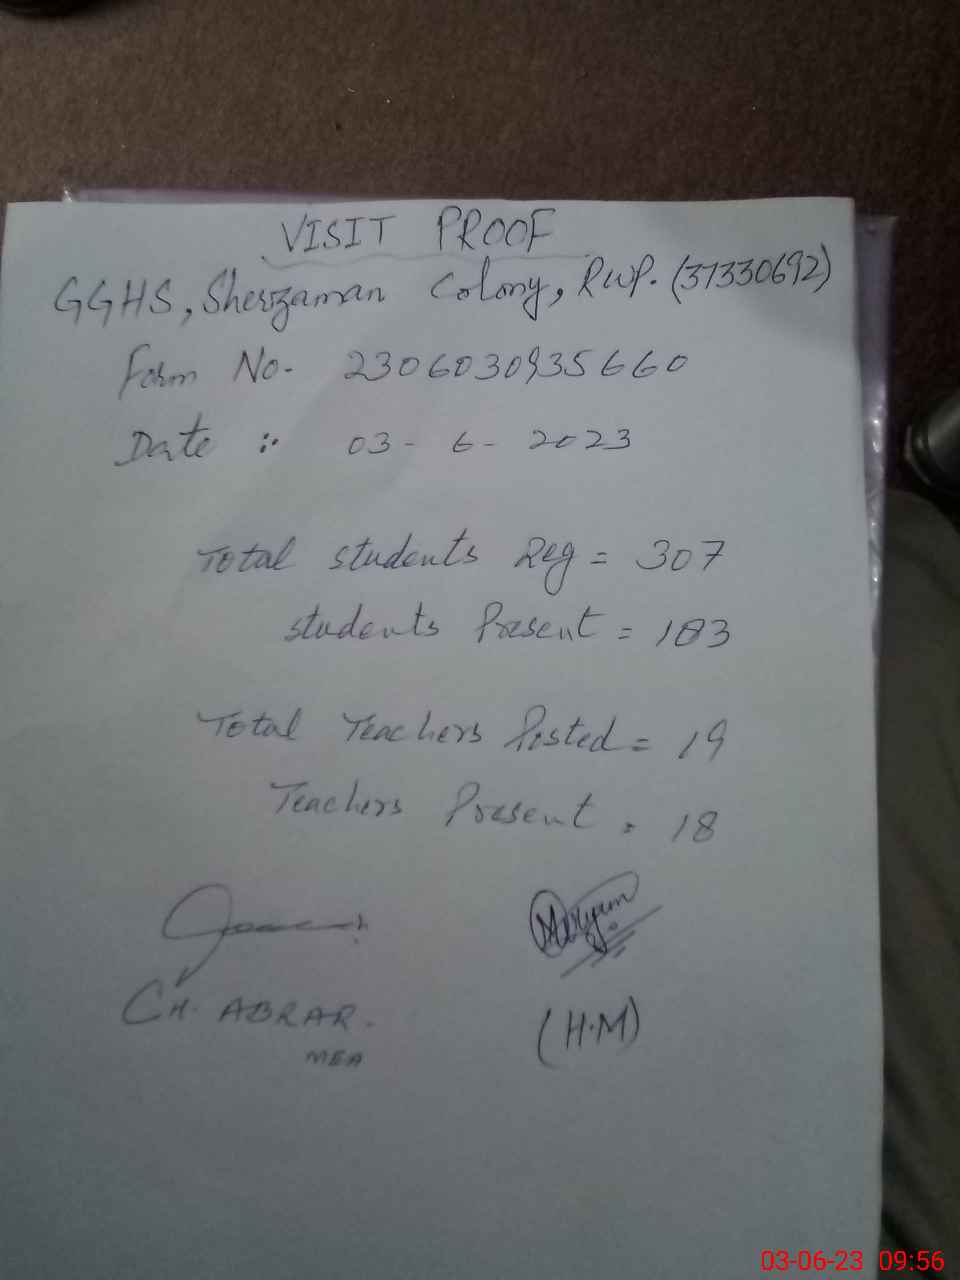 VISIT PROOF
GGHS, Sherzaman Colony, RWP. (37330692)
Form No. 2306030935660
Date :. 03-6-2023
Total students Reg = 307
students Present = 183
Total Teachers Posted = 19
Teachers Present = 18
Maryam
CH. ABRAR.
MEA
(H.M)
03-06-23 09:56